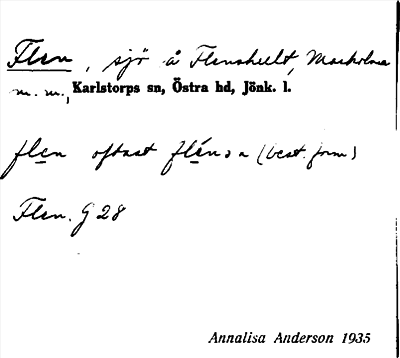 Flen, sjö å Flenshult, Moeholma
m. m., Karlstorps sn, Östra hd, Jönk. l.
flen oftast flénɔn (best. form)
Flen. G 28
Annalisa Anderson 1935